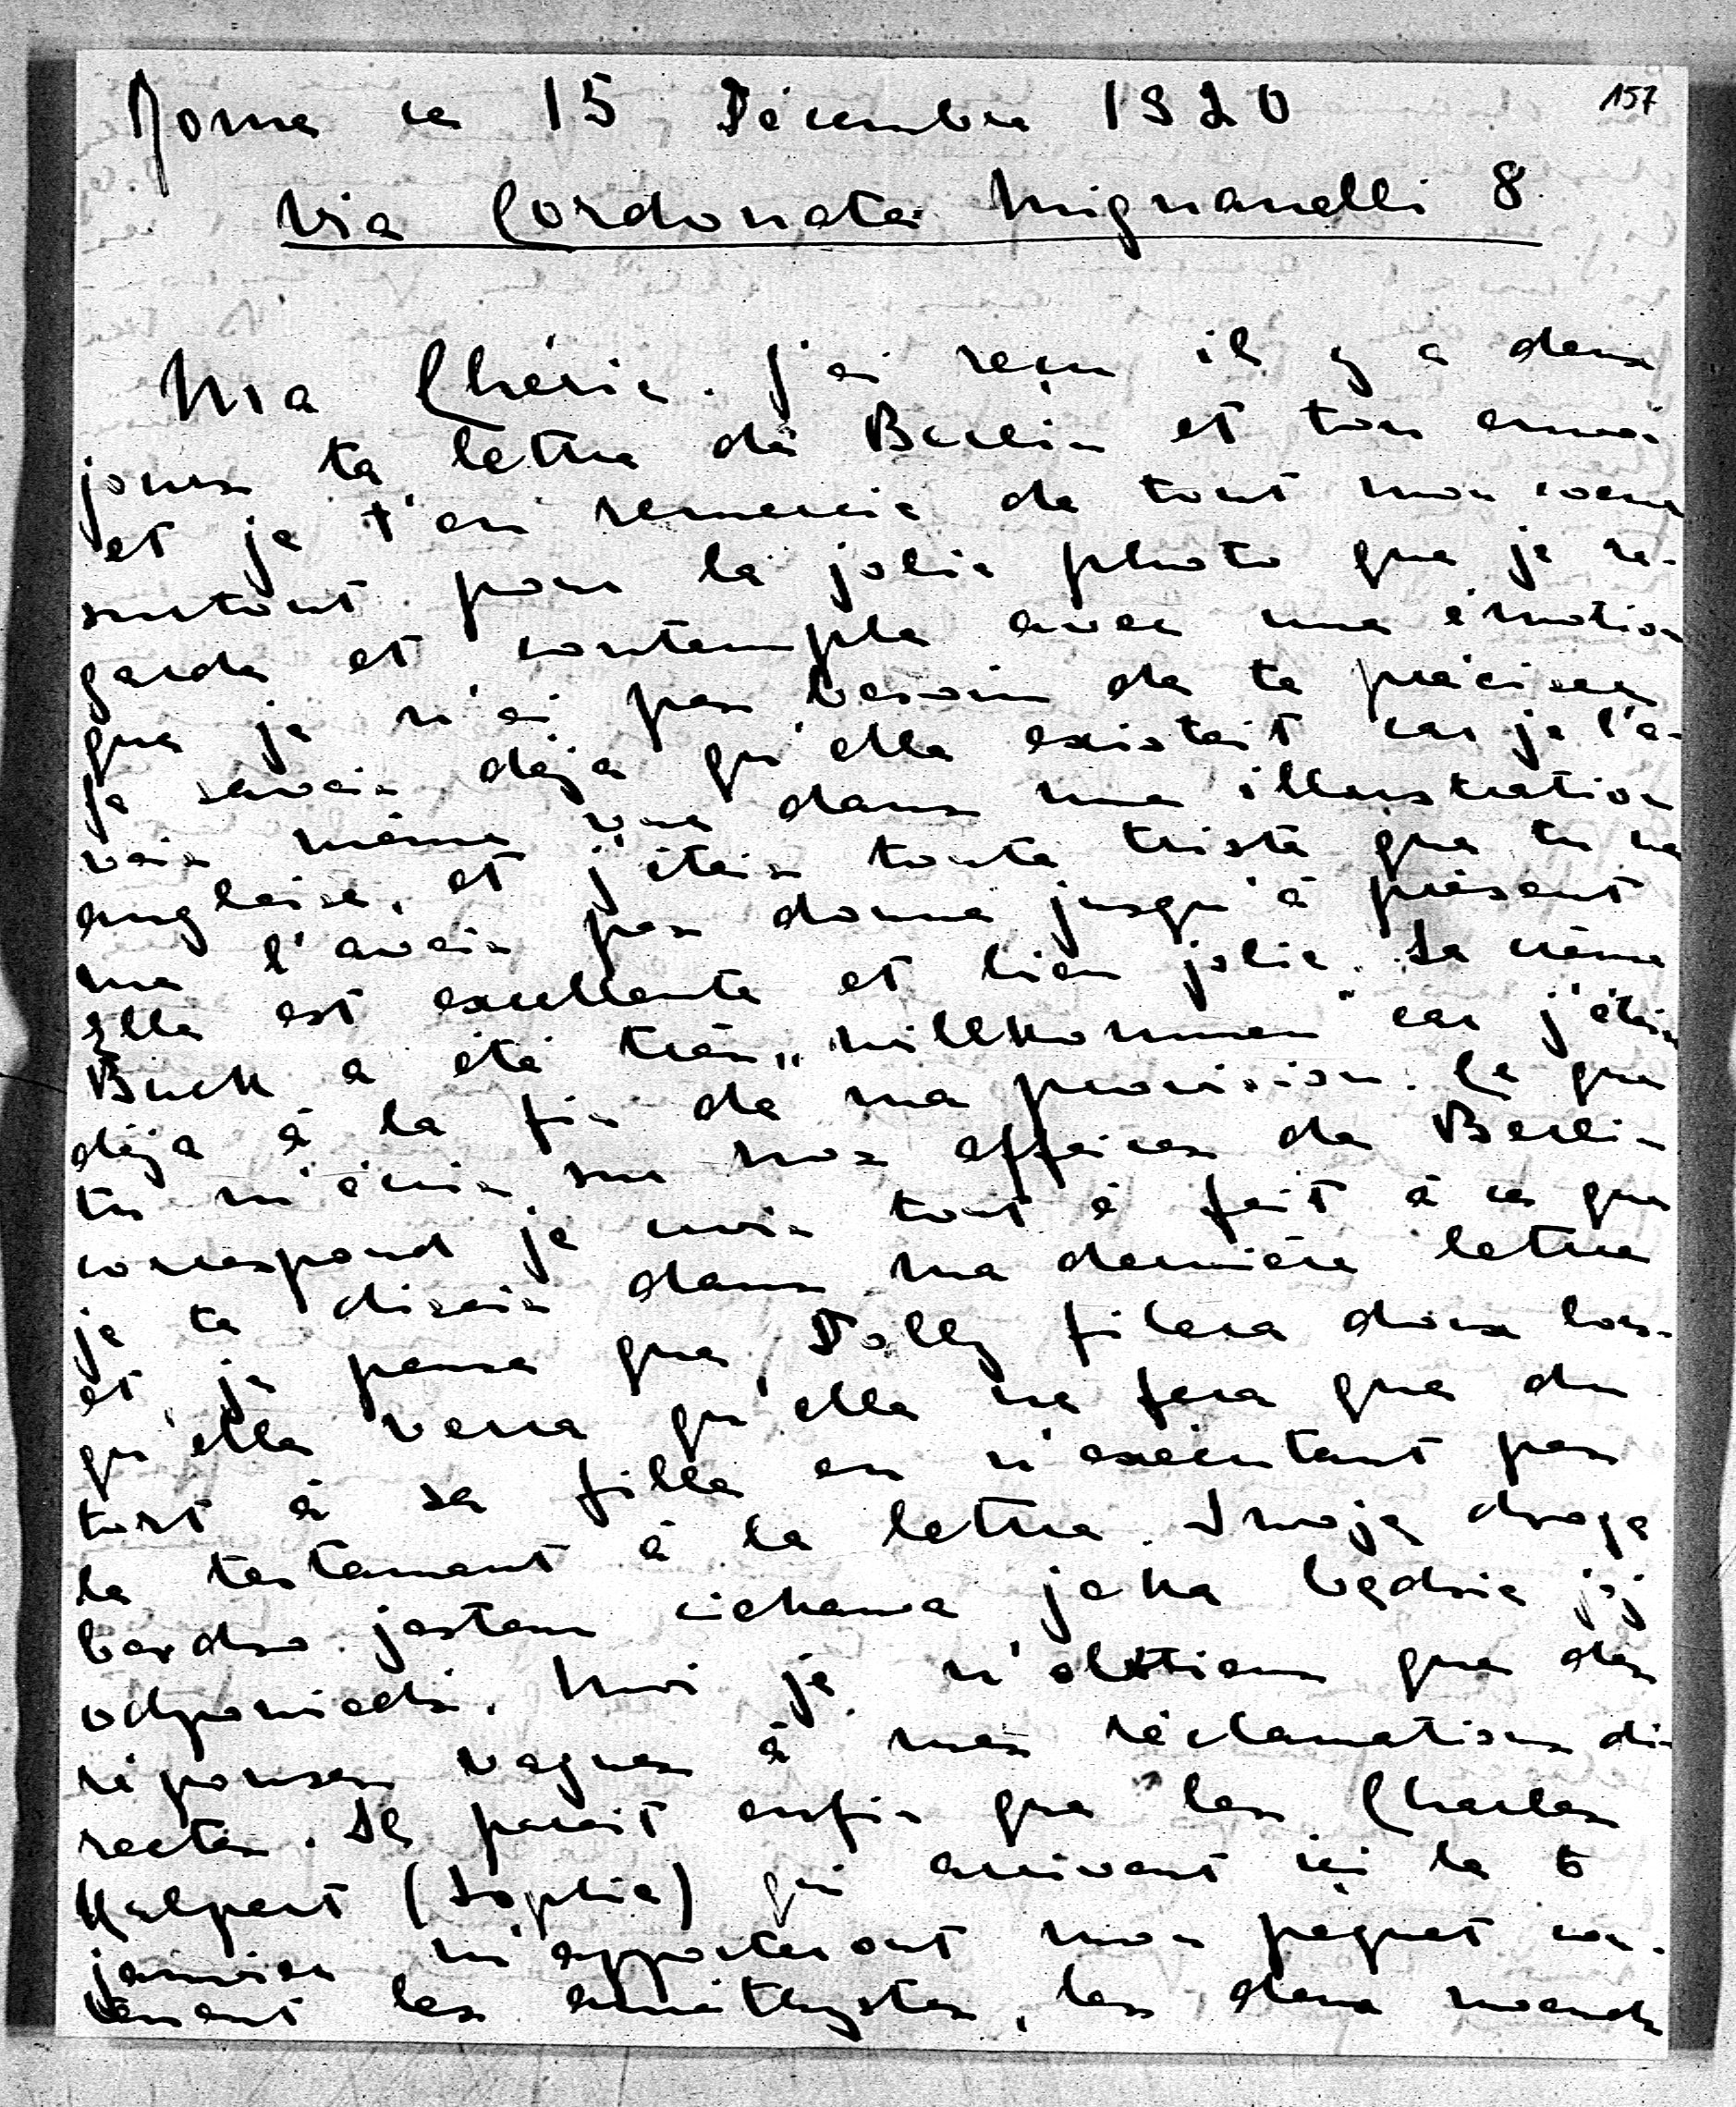 Rome ce 15 Décembre 1920
157
Via Cordonata Mignanelli 8
Ma Chérie. J'ai reçu il y a deux
jours ta lettre de Berlin et ton envoi
et je t'en remercie de tout mon coeur
surtout pour la jolie photo que je re-
garde et contemple avec une émotion
que je n'ai pas besoin de te préciser
Je savais déja qu'elle existait car je l'a-
vais même vue dans une illustration
anglaise, et j'étais toute triste que tu ne
me l'avais pas donné jusqu'à présent
elle est excellente et bien jolie. La crème
Buck a été très „willkommen" car j'étais
déja à la fin de ma provision. Ce que
tu m'écris sur nos affaires de Berlin
correspond je crois tout à fait à ce que
je te disais dans ma dernière lettre
et je pense que Dolly filera doux lors-
qu'elle verra qu'elle ne fera que du
tort à sa fille en n'exécutant pas
le testament à la lettre. Swoją drogą
bardzo jestem ciekawa jaka będzie jej
odpowiedź. Moi je n'obtiens que des
réponses vagues à mes réclamations di-
rectes. Il parait enfin que les Charles
Kalpert (Sophie) qui arrivent ici le 6
janvier m'apporteront mon paquet con-
tenant les améthystes, les deux noeuds